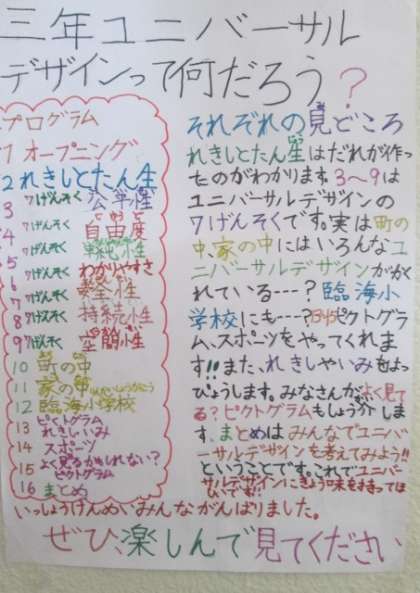 三年ユニバーサル
デザインって何だろう?
プログラム
1 オープニング
2 れきしとたん生
3 7げんそく 公平性
4 7げんそく 自由度
5 7げんそく 単純性
6 7げんそく わかりやすさ
7 7げんそく 安全性
8 7げんそく 持続小生
9 7げんそく 空間小生
10 町の中
11 家の中
12 臨海小学校
13 ピクトグラム
れきしいみ
14 スポーツ
15 よく見るかもしれない?
ピクトグラム
16 まとめ
それぞれの見どころ
れきしとたん生はだれが作っ
たのかがわかります。3〜9は
ユニバーサルデザインの
7げんそくです。実は町の
中、家の中にはいろんなユ
ニバーサルデザインがかく
れている---?臨海小
学校にも---?ピクトグラ
ム、スポーツをやってくれま
す!!また、れきしやいみをはっ
ぴょうします。みなさんがよく見て
る?ピクトグラムもしょう介しま
す、まとめはみんなでユニバ
ーサルデザインを考えてみよう!!
ということです。これでユニバー
サルデザインにきょう味を持ってほし
いです!!
いっしょうけんめいみんながんばりました。
ぜひ、楽しんで見てください